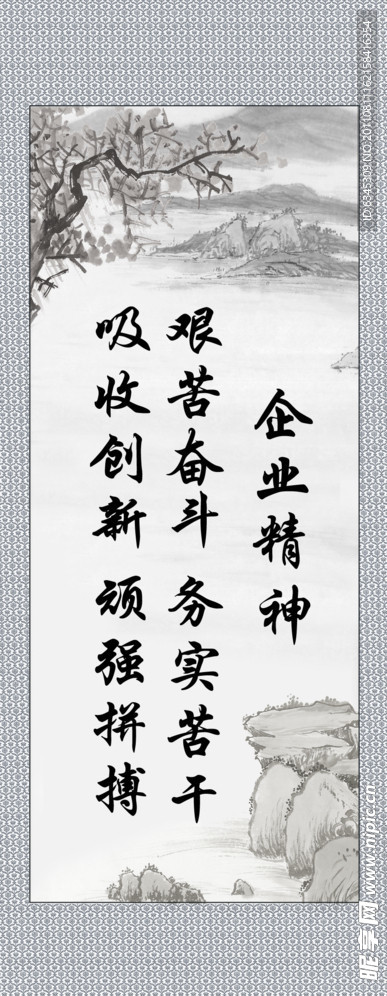 企业精神
艰苦奋斗 务实苦干
吸收创新 顽强拼搏
昵享网 www.nipic.cn